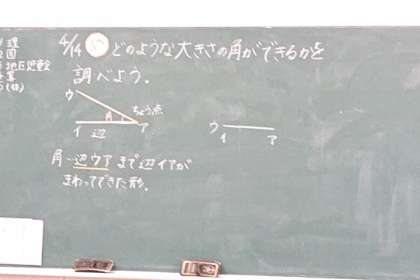 4/14 どのような大きさの角ができるかを
調べよう.
ウ
ちょう点
角
イ 辺 ア
ウ
イ ア
角…辺ウアまで辺イアが
まわってできた形.